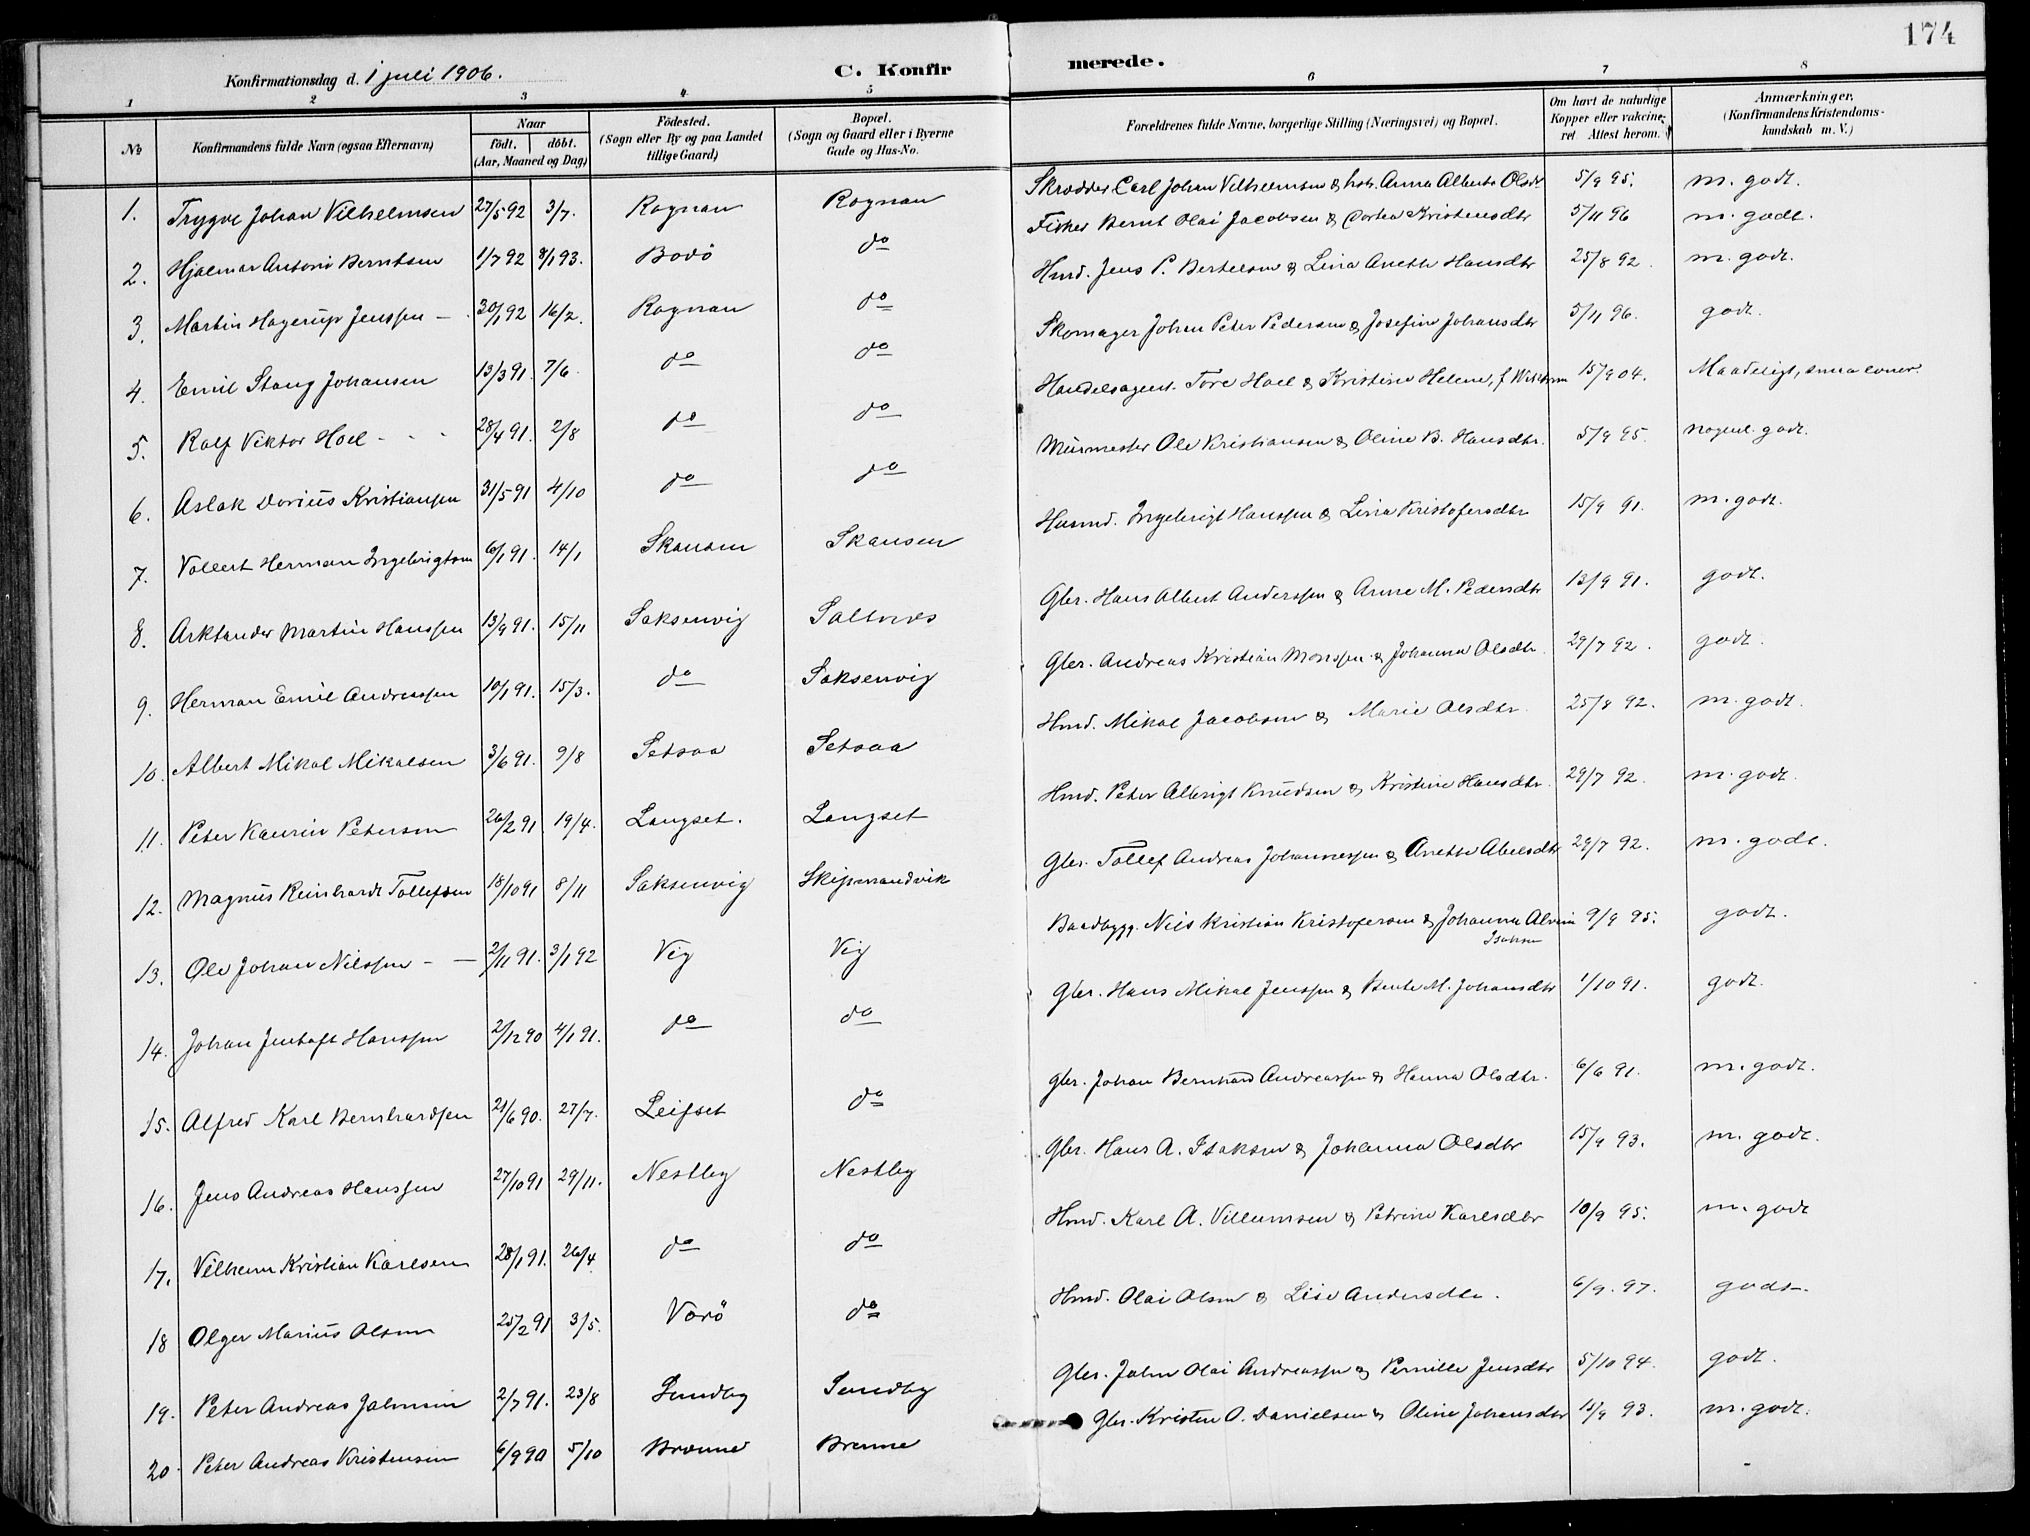 174
Konfirmationsdag d. 1 juli 1906. C. Konfirmerede.
1 2 3 4 5 6 7 8
No
Konfirmandens fulde Navn (ogsaa Efternavn)
Naar
födt. döbt.
(Aar, Maaned og Dag)
Födested.
(Sogn eller By og paa Landet
tillige Gaard)
Bopæl.
(Sogn og Gaard eller i Byerne
Gade og Hus-No.
Forældrenes fulde Navne, borgerlige Stilling (Næringsvei) og Bopæl.
Om havt de naturlige
Kopper eller vakcine-
ret. Attest herom.
Anmærkninger.
(Konfirmandens Kristendoms-
kundskab m. V.)
1. Trygve Johan Vilhelmsen 27/5 92 3/7. Rognan Rognan Skrædder Carl Johan Vilhelmsen & hstr. Anna Alberta Olsdt 5/9 95. m. godt.
2. Hjalmar Antoni Berntsen 1/7 92 8/1 93. Bodö do Fisker Bernt Olai Jacobsen & Dortea Kristensdtr 5/11 96 m. godt.
3. Martin Hagerup Jenssen - 30/1 92 16/2. Rognan do Hmd. Jens P. Bertelsen & Lina Anette Hansdtr 25/8 92. m. godt.
4. Emil Stang Johansen 13/3 91. 7/6. do do Skomager Johan Peter Pedersen & Josefine Johansdtr 5/11 96. godt.
5. Ralf Viktor Hoel - - - 28/4 91. 2/8 do do Handelsagent. Tore Hoel & Kristine Helene, f. 15/9 04. Maadeligt, smaa evner.
6. Aslak Dorius Kristiansen 31/5 91 4/10 do do Murmester Ole Kristiansen & Oline B. Hansdtr. 5/9 95. nogenl. godt.
7. Vollert Herman Ingebrigtsen 6/1 91. 14/1 Skansen Skansen Husmd. Ingebrigt Hanssen & Lina Kristofersdtr 15/9 91. m. godt.
8. Arktander Martin Hanssen 13/9 91. 15/11 Saksenvig Saltnes Gbr. Hans Albert Anderssen & Anne M. Pedersdtr 13/9 91. godt.
9. Herman Emil Andreassen 10/1 91. 15/3. do Saksenvig Gbr. Andreas Kristian Monssen & Johanna Olsdtr. 29/7 92. godt.
10. Albert Mikal Mikalsen 3/6 91. 9/8 Setsaa Setsaa Hmd. Mikal Jacobsen & Marie Olsdtr. 25/8 92. m. godt.
11. Peter Kaurin Petersen 26/2 91. 19/4. Langset. Langset Hmd. Peter Albrigt Knudsen & Kristine Hansdtr. 29/7 92. m. godt.
12. Magnus Reinhardt Tollefsen 18/10 91 8/11 Saksenvig Skipmandvik Gbr. Tollef Andreas Johannessen & Anette Abelsdtr 29/7 92. m. godt.
13. Ole Johan Nilssen - - 2/11 91. 3/1 92 Vig Vig Baadbygg. Nils Kristian Kristofersen & Johanna Alvina 9/9 95. godt.
Isaksen
14. Johan Jentoft Hanssen 2/12 90 4/1 91. do do Gbr. Hans Mikal Jenssen & Bente M. Johansdtr 1/10 91. godt.
15. Alfred Karl Bernhardsen 21/6 90. 27/7. Leifset do Gbr. Johan Bernhard Andreassen & Hanna Olsdtr. 6/6 91. m. godt.
16. Jens Andreas Hanssen 27/10 91 29/11. Nestby Nestby Gbr. Hans A. Isaksen & Johanna Olsdtr 15/9 93. m. godt.
17. Vilhelm Kristian Karlsen 28/1 91. 26/4 do do Hmd. Karl A. Villumsen & Petrine Karlsdtr 10/9 95. m. godt
18 Olger Marius Olsen 25/2 91 3/5. Værö do Hmd. Olai Olsen & Lise Andersdtr. 6/9. 97. godt.
19. Peter Andreas Jahnsen 2/7 91. 23/8 Sundby Sundby Gbr. Jahn Olai Andreassen & Pernille Jensdtr 5/10 94. godt.
20. Peter Andreas Kristensen 6/9 90 5/10 Brænne Brenne Gbr. Kristen O. Danielsen & Oline Johansdtr 15/9 93. m. godt.